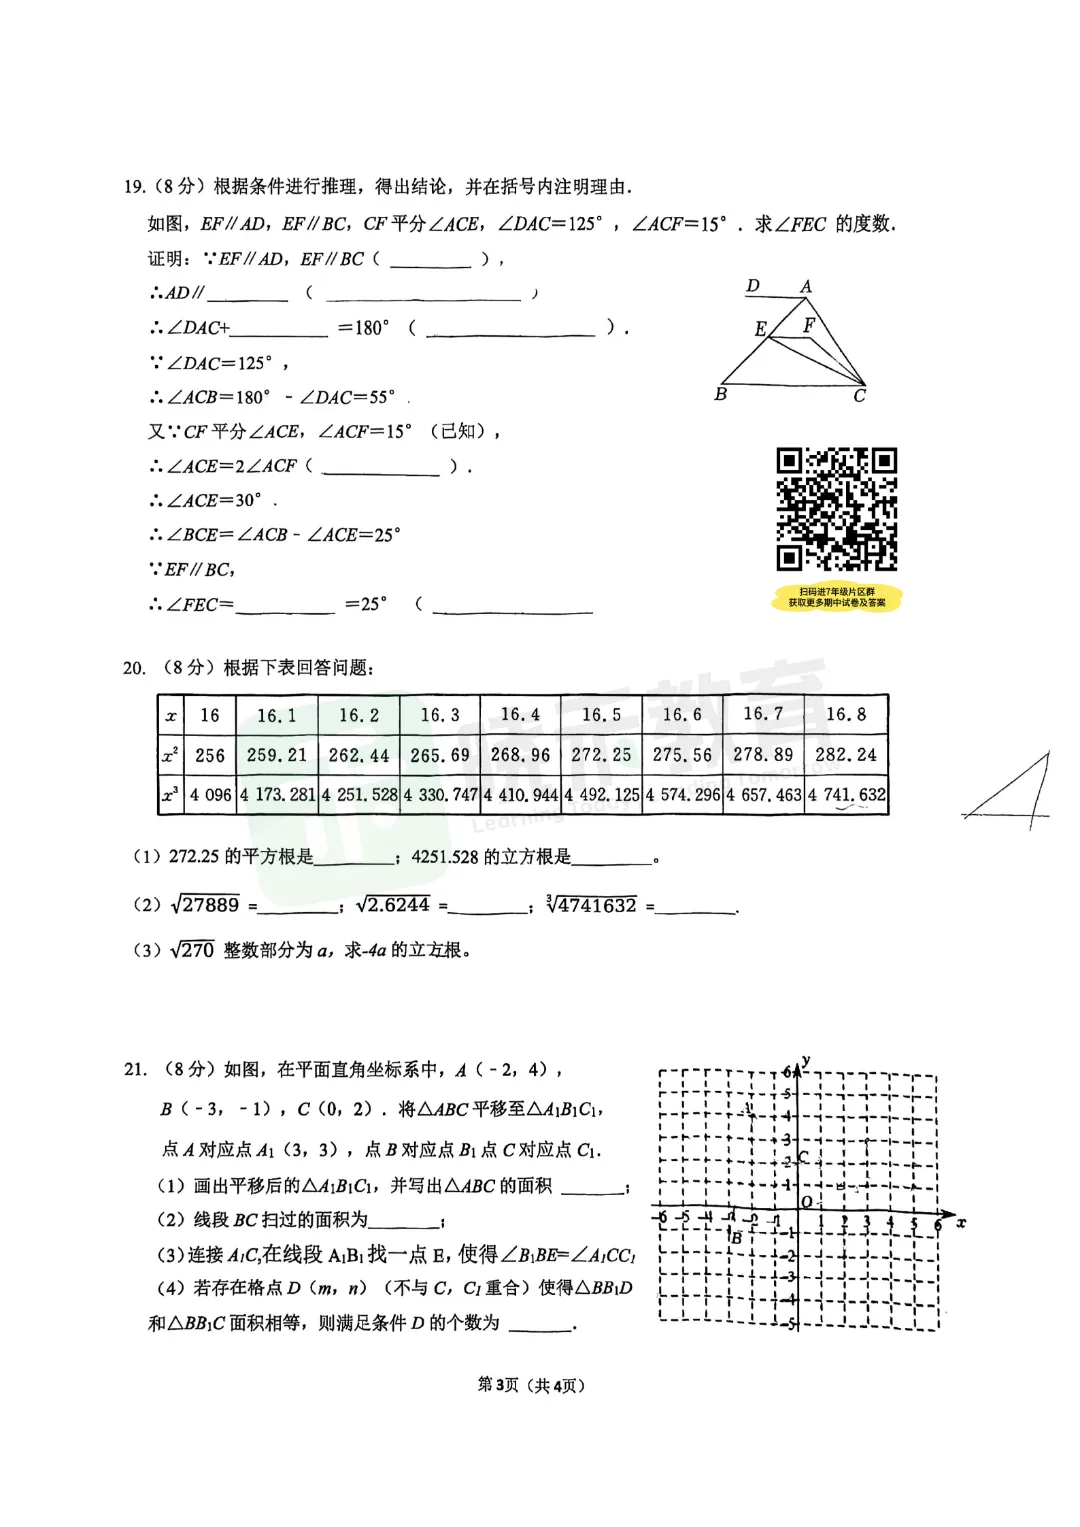 19.（8分）根据条件进行推理，得出结论，并在括号内注明理由.
如图，EF∥AD，EF∥BC，CF平分∠ACE，∠DAC=125°，∠ACF=15°．求∠FEC 的度数.
证明：∵EF∥AD，EF∥BC（ ________ ），
∴AD∥ ________ （ ____________________ ）
∴∠DAC+__________ =180°（ _________________ ）.
∵∠DAC=125°，
∴∠ACB=180° - ∠DAC=55°.
又∵CF平分∠ACE，∠ACF=15°（已知），
∴∠ACE=2∠ACF（ ____________ ）.
∴∠ACE=30°.
∴∠BCE=∠ACB - ∠ACE=25°
∵EF∥BC，
∴∠FEC=__________ =25°（ ________________
D A
E F
B C
扫码进7年级片区群
获取更多期中试卷及答案
20.（8分）根据下表回答问题：
x 16 16.1 16.2 16.3 16.4 16.5 16.6 16.7 16.8
x² 256 259.21 262.44 265.69 268.96 272.25 275.56 278.89 282.24
x³ 4 096 4 173.281 4 251.528 4 330.747 4 410.944 4 492.125 4 574.296 4 657.463 4 741.632
（1）272.25 的平方根是________；4251.528 的立方根是________。
（2）√27889 =________；√2.6244 =________；∛4741632 =________.
（3）√270 整数部分为 a，求-4a 的立方根。
21.（8分）如图，在平面直角坐标系中，A（-2，4），
B（-3，-1），C（0，2）.将△ABC平移至△A₁B₁C₁，
点A对应点A₁（3，3），点B对应点B₁点C对应点C₁.
（1）画出平移后的△A₁B₁C₁，并写出△ABC的面积 ______；
（2）线段BC扫过的面积为_______；
（3）连接A₁C,在线段A₁B₁找一点E，使得∠B₁BE=∠A₁CC₁
（4）若存在格点D（m，n）（不与C，C₁重合）使得△BB₁D
和△BB₁C面积相等，则满足条件D的个数为 ______.
y
6
5
A 4
3
2 C
1
O
-6 -5 -4 -3 -2 -1 1 2 3 4 5 6 x
B -1
-2
-3
-4
-5
第3页（共4页）